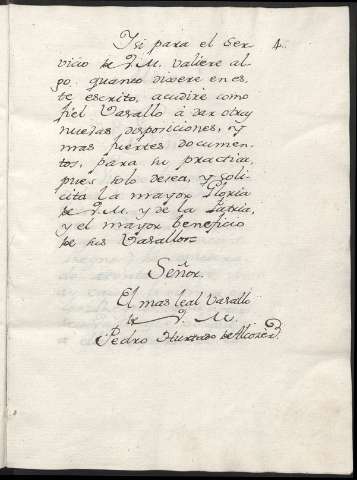 Y si para el Ser- 4.
vicio de V. M. valiere al-
go. quanto dixere en es-
te escrito, acudiré como
fiel Vasallo â dar otras
nuevas disposiciones, y
mas fuertes documen-
tos, para su practica,
pues solo desea, y soli-
cita la mayor Gloria
de V. M. y de la Patria,
y el mayor beneficio
de sus Vasallos=
Señor.
El mas leal Vasallo
de V. M.
Pedro Hurtado de Alcozer